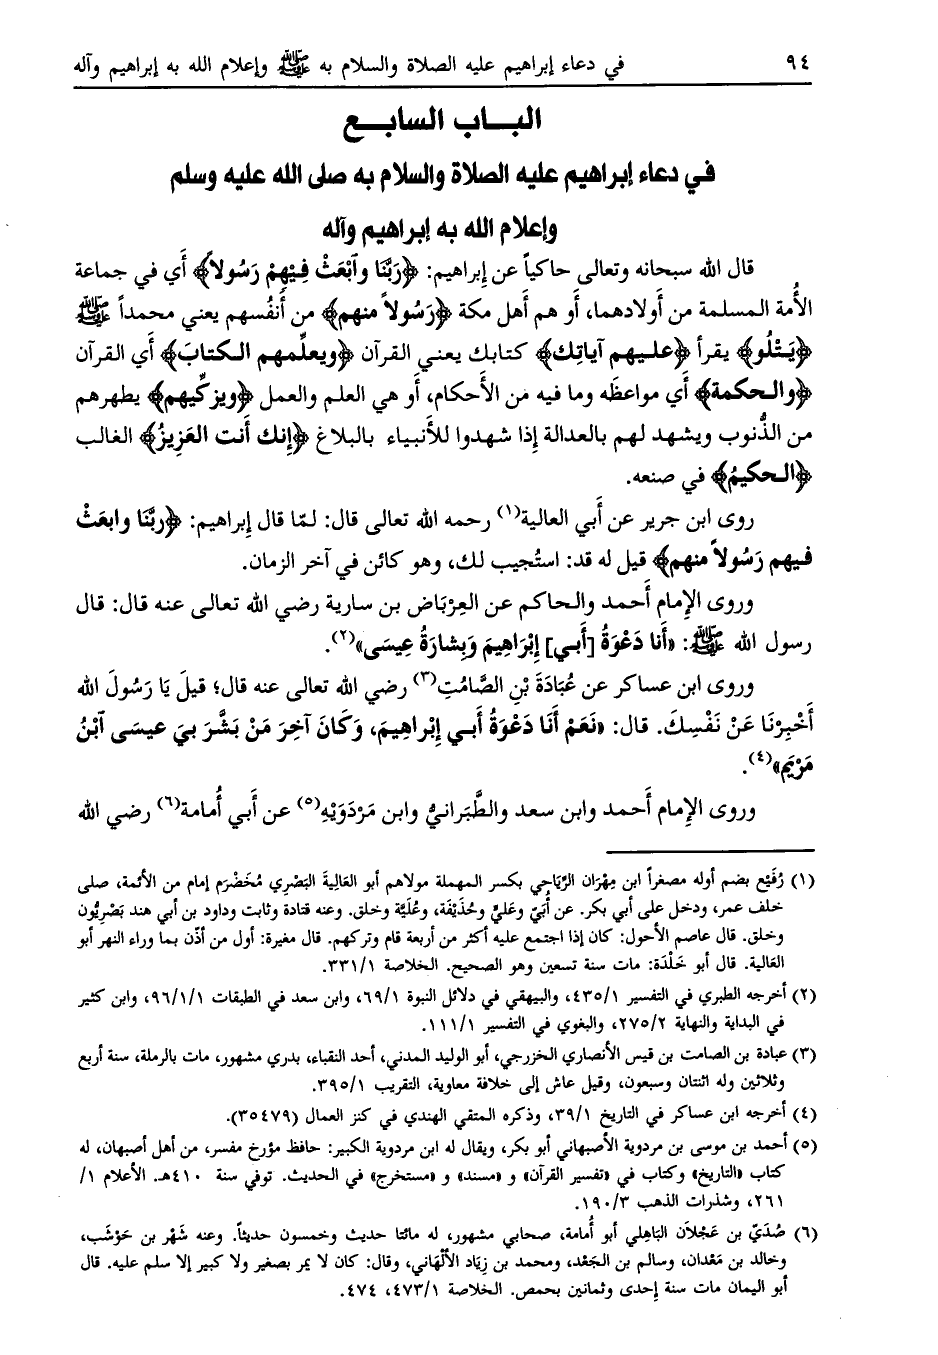 ٩٤ في دعاء إبراهيم عليه الصلاة والسلام به ﷺ وإعلام الله به إبراهيم وآله
البـــاب السابـــع
في دعاء إبراهيم عليه الصلاة والسلام به صلى الله عليه وسلم
وإعلام الله به إبراهيم وآله
قال الله سبحانه وتعالى حاكياً عن إبراهيم: ﴿رَبَّنَا وٱبْعَثْ فِيْهِمْ رَسُولاً﴾ أَي في جماعة
الأُمة المسلمة من أَولادهما، أَو هم أَهل مكة ﴿رَسُولاً منهم﴾ من أَنفُسهم يعني محمداً ﷺ
﴿يَتْلُو﴾ يقرأ ﴿عليهم آياتِك﴾ كتابك يعني القرآن ﴿ويعلِّمهم الكتابَ﴾ أَي القرآن
﴿والحكمة﴾ أَي مواعظَه وما فيه من الأَحكام، أَو هي العلم والعمل ﴿ويزكِّيهم﴾ يطهرهم
من الذُّنوب ويشهد لهم بالعدالة إِذا شهدوا للأَنبياء بالبلاغ ﴿إنك أنت العَزِيزُ﴾ الغالب
﴿الحكيمُ﴾ في صنعه.
روى ابن جرير عن أَبي العالية(١) رحمه الله تعالى قال: لمّا قال إِبراهيم: ﴿ربَّنَا وابعَثْ
فيهم رَسُولاً منهم﴾ قيل له قد: استُجيب لك، وهو كائن في آخر الزمان.
وروى الإِمام أَحمد والحاكم عن العِرْبَاض بن سارية رضي الله تعالى عنه قال: قال
رسول الله ﷺ: «أَنا دَعْوَةُ [أَبي] إِبْرَاهِيمَ وَبِشارَةُ عِيسَى»(٢).
وروى ابن عساكر عن عُبَادَةَ بْنِ الصَّامُتِ(٣) رضي الله تعالى عنه قال؛ قيلَ يَا رَسُولَ الله
أَخْبِرْنَا عَنْ نَفْسِكَ. قال: «نَعَمْ أَنَا دَعْوَةُ أَبي إِبْرَاهِيمَ، وَكَانَ آخِرَ مَنْ بَشَّرَ بيَ عيسَى ٱبْنُ
مَرْيَم»(٤).
وروى الإِمام أَحمد وابن سعد والطَّبَرانيُّ وابن مَرْدَوَيْهِ(٥) عن أَبي أُمامة(٦) رضي الله
(١) رُفَيْع بضم أوله مصغراً ابن مِهْرَان الرِّيَاحِي بكسر المهملة مولاهم أبو العَالِيةَ البَصْرِي مُخَضْرَم إمام من الأئمة، صلى
خلف عمر، ودخل على أبي بكر. عن أُبَيّ وعَليّ وحُذَيْفَة، وعُلَيَّة وخلق. وعنه قتادة وثابت وداود بن أبي هند بَصْرِيُّون
وخلق. قال عاصم الأحول: كان إذا اجتمع عليه أكثر من أربعة قام وتركهم. قال مغيرة: أول من أذّن بما وراء النهر أبو
العَالية. قال أبو خَلْدَة: مات سنة تسعين وهو الصحيح. الخلاصة ٣٣١/١.
(٢) أخرجه الطبري في التفسير ٤٣٥/١، والبيهقي في دلائل النبوة ٦٩/١، وابن سعد في الطبقات ٩٦/١/١، وابن كثير
في البداية والنهاية ٢٧٥/٢، والبغوي في التفسير ١١١/١.
(٣) عبادة بن الصامت بن قيس الأنصاري الخزرجي، أبو الوليد المدني، أحد النقباء، بدري مشهور، مات بالرملة، سنة أربع
وثلاثين وله اثنتان وسبعون، وقيل عاش إلى خلافة معاوية، التقريب ٣٩٥/١.
(٤) أخرجه ابن عساكر في التاريخ ٣٩/١، وذكره المتقي الهندي في كنز العمال (٣٥٤٧٩).
(٥) أحمد بن موسى بن مردوية الأصبهاني أبو بكر، ويقال له ابن مردوية الكبير: حافظ مؤرخ مفسر، من أهل أصبهان، له
كتاب «التاريخ» وكتاب في «تفسير القرآن» و «مسند» و «مستخرج» في الحديث. توفي سنة ٤١٠هـ. الأعلام ١/
٢٦١، وشذرات الذهب ١٩٠/٣.
(٦) صُدَيّ بن عَجْلاَن البَاهِلي أبو أُمامة، صحابي مشهور، له مائتا حديث وخمسون حديثاً. وعنه شَهْر بن حَوْشَب،
وخالد بن مَعْدان، وسالم بن الجَعْد، ومحمد بن زِيَاد الأَلْهَاني، وقال: كان لا يمر بصغير ولا كبير إلا سلم عليه. قال
أبو اليمان مات سنة إحدى وثمانين بحمص. الخلاصة ٤٧٣/١، ٤٧٤.